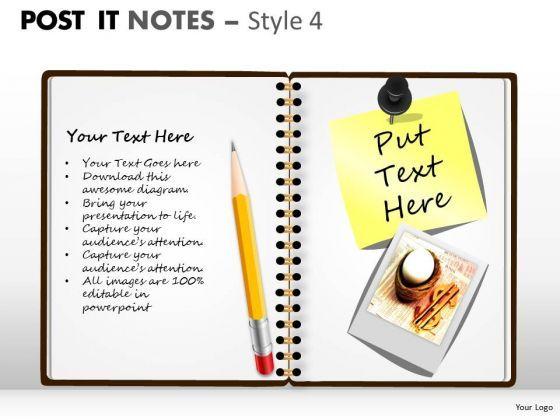 POST IT NOTES – Style 4
Your Text Here
• Your Text Goes here
• Download this
awesome diagram.
• Bring your
presentation to life.
• Capture your
audience's attention.
• Capture your
audience's attention.
• All images are 100%
editable in
powerpoint
Put
Text
Here
Your Logo